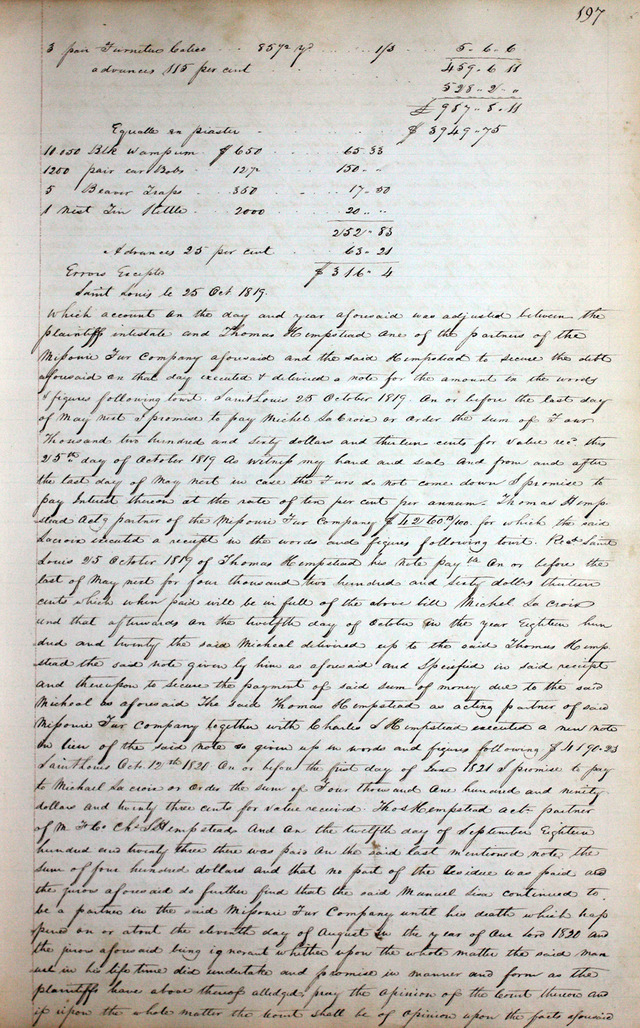 197
3 pair Furniture Calico 85 1/2 yd 1/3 5-6-6
advances 115 per cent 459-6 11
528-2-"
£ 987-8-11
Equalle en piaster $ 3949-75
11050 Blk Wampum $ 650 65-33
1200 pair ear Bobs 12 1/2 150-"
5 Beaver Traps 350 17-50
1 Nest Tin Kettle 2000 20-"
252-83
Advances 25 per cent 63-21
Errors Excepts $ 316-4
Saint Louis le 25 Oct 1819.
Which account on the day and year aforesaid was adjusted between the
plaintiffs intestate and Thomas Hempstead one of the partners of the
Missouri Fur Company aforesaid and the said Hempstead to secure the debt
aforesaid on that day executed & delivered a note for the amount in the words
& figures following towit. Saint Louis 25 October 1819. On or before the last day
of May next I promise to pay Michel La Croix or order the sum of Four
Thousand two hundred and sixty dollars and thirteen cents for value recd this
25th day of October 1819 As witness may hand and seal And from and after
the last day of May next in case the Furs do not come down I promise to
pay Interest thereon at the rate of ten per cent per annum. Thomas Hemp
stead Actg partner of the Missouri Fur Company $ 4260 13/100. for which the said
Lacroix executed a receipt in the words and figures following towit. Recd Saint
Louis 25 October 1819 of Thomas Hempstead his Note pay on or before the
last of May next for four thousand two hundred and sixty dollars thirteen
cents which when paid will be in full of the above bill Michel La Croix
and that afterwards on the twelfth day of October in the year Eighteen hun
dred and twenty the said Micheal delivered up to the said Thomas Hemp
stead the said note given by him as aforesaid and Specified in said receipt
and thereupon to secure the payment of said sum of money due to the said
Micheal as aforesaid The said Thomas Hempstead as acting partner of said
Missouri Fur Company together with Charles S Hempstead executed a new note
in lieu of the said note so given up in words and figures following $ 4190-23
Saint Louis Oct. 12th 1820 On or before the first day of June 1821 I promise to pay
to Michael La croix or Order the sum of Four thousand One hundred and ninety
dollars and twenty three cents for value received. Thos Hempstead actg partner
of M F Co Chs S Hempstead And on the twelfth day of September Eighteen
hundred and twenty three there was paid on the said last mentioned note, the
sum of four hundred dollars and that no part of the residue was paid and
the jurors aforesaid do further find that the said Manuel Lisa continued to
be a partner in the said Missouri Fur Company until his death which hap
pened on or about the eleventh day of August in the year of Our lord 1820 and
the jurors aforesaid being ignorant whether upon the whole matter the said Man
uel in his life time did undertake and promise in manner and form as the
plaintiffs have above thereof alledged, pray the opinion of the Court thereon and
if upon the whole matter the Court shall be of opinion upon the facts aforesaid